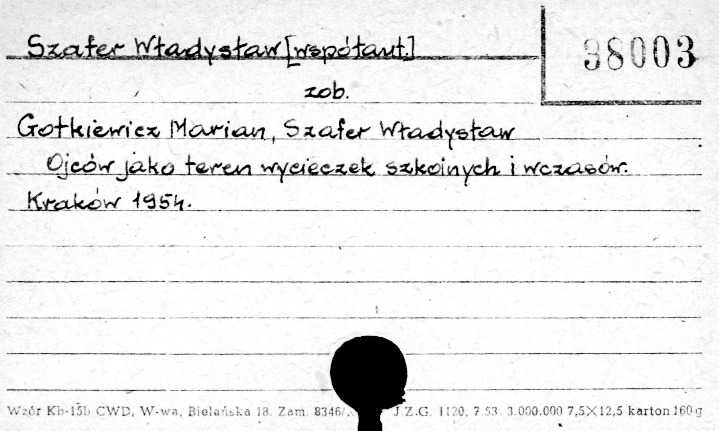 Szafer Władysław [współaut.]
38003
zob.
Gotkiewicz Marian, Szafer Władysław
Ojców jako teren wycieczek szkolnych i wczasów.
Kraków 1954.
Wzór Kb-15b CWD, W-wa, Bielańska 18. Zam. 8346/ J.Z.G. 1120. 7 53. 3.000.000 7,5×12,5 karton 160 g